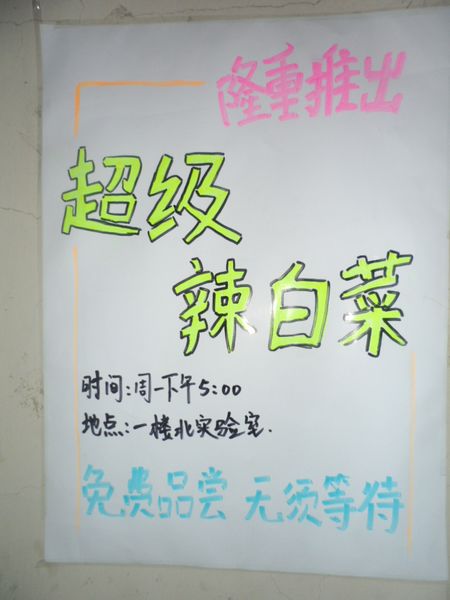 隆重推出
超级
辣白菜
时间:周一下午5:00
地点:一楼北实验室.
免费品尝 无须等待